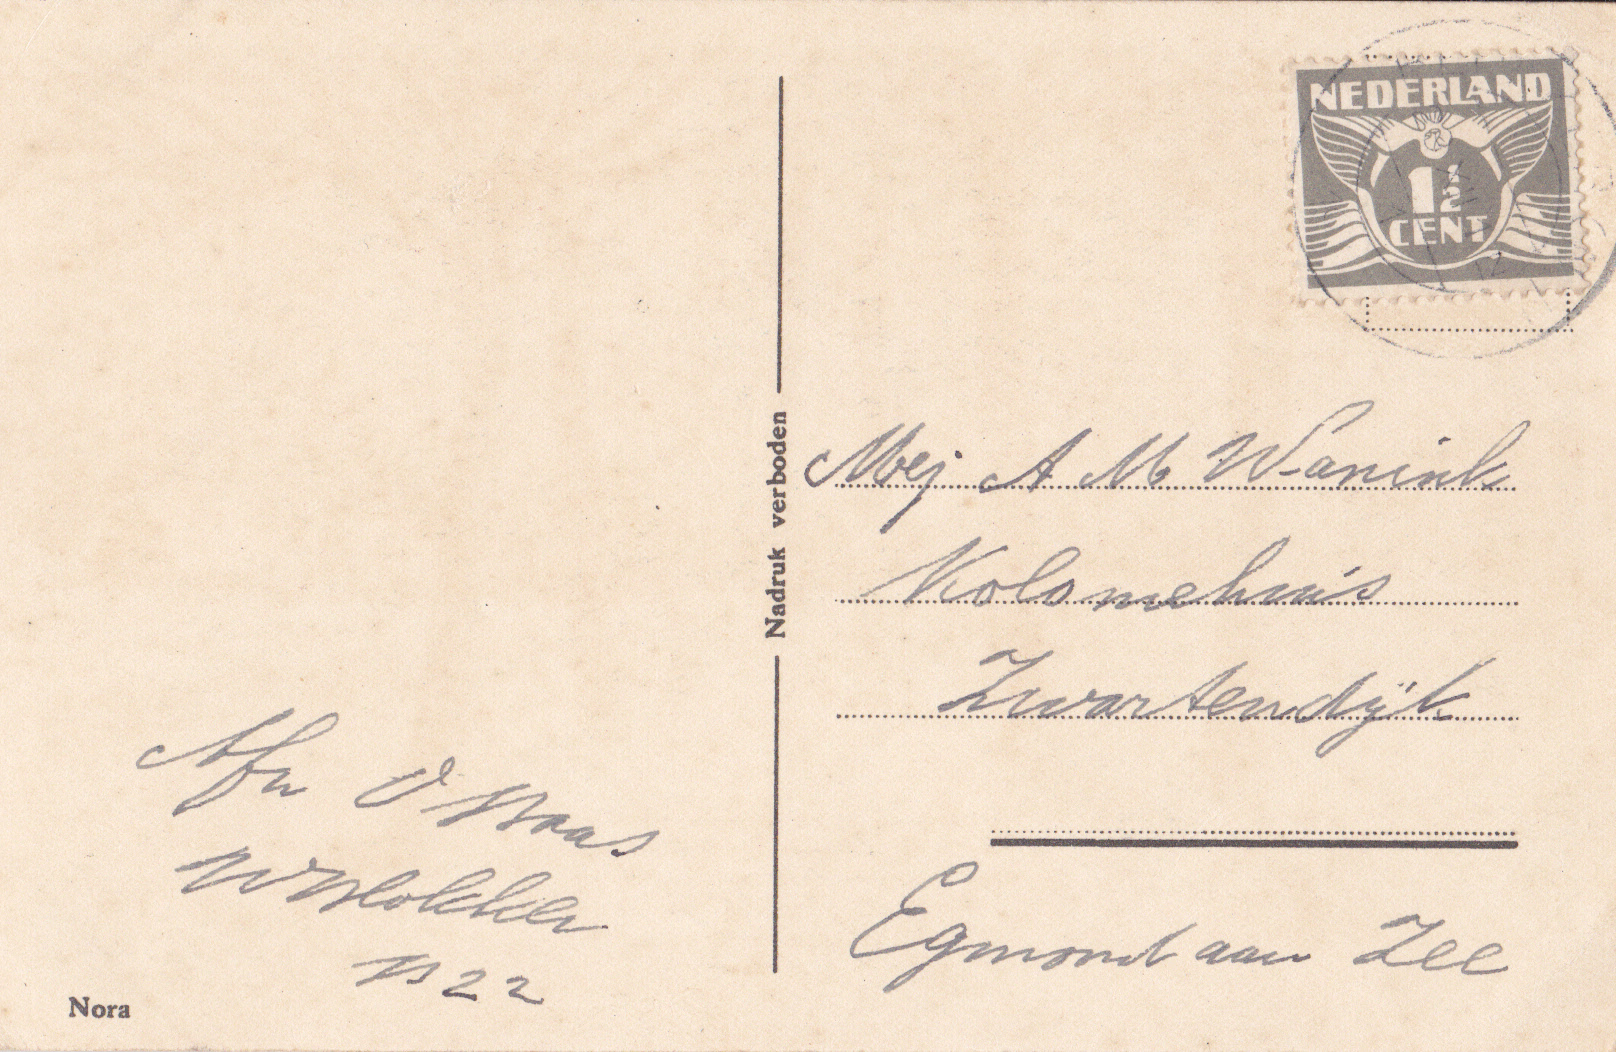 NEDERLAND
1½
CENT
Nadruk verboden
Mej A M Wanink
Koloniehuis
Zwartendijk
Egmond aan Zee
Afz V Baas
W Blokker
B 22
Nora